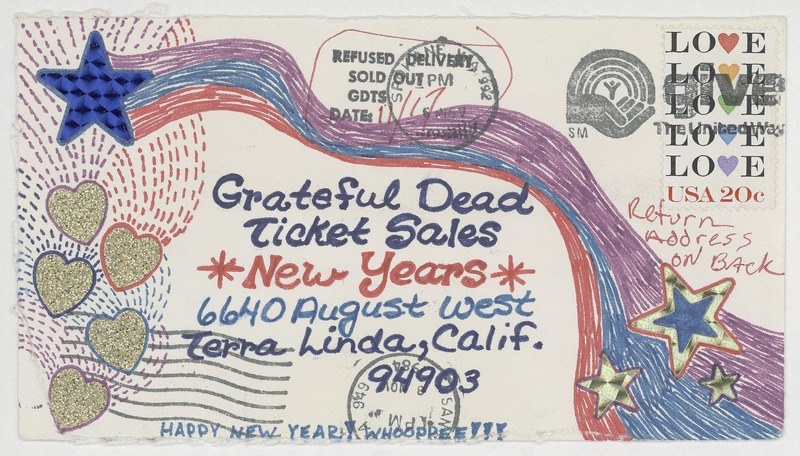 REFUSED DELIVERY
SOLD OUT
GDTS
DATE: 11/17
SPOKANE, WA 992
PM
GIVE
The United Way
SM
LOVE
LOVE
LOVE
LOVE
LOVE
USA 20c
Return
Address
on Back
Grateful Dead
Ticket Sales
*New Years*
6640 August West
Terra Linda, Calif.
94903
SAN
949
PM
HAPPY NEW YEAR! WHOOPPEE!!!